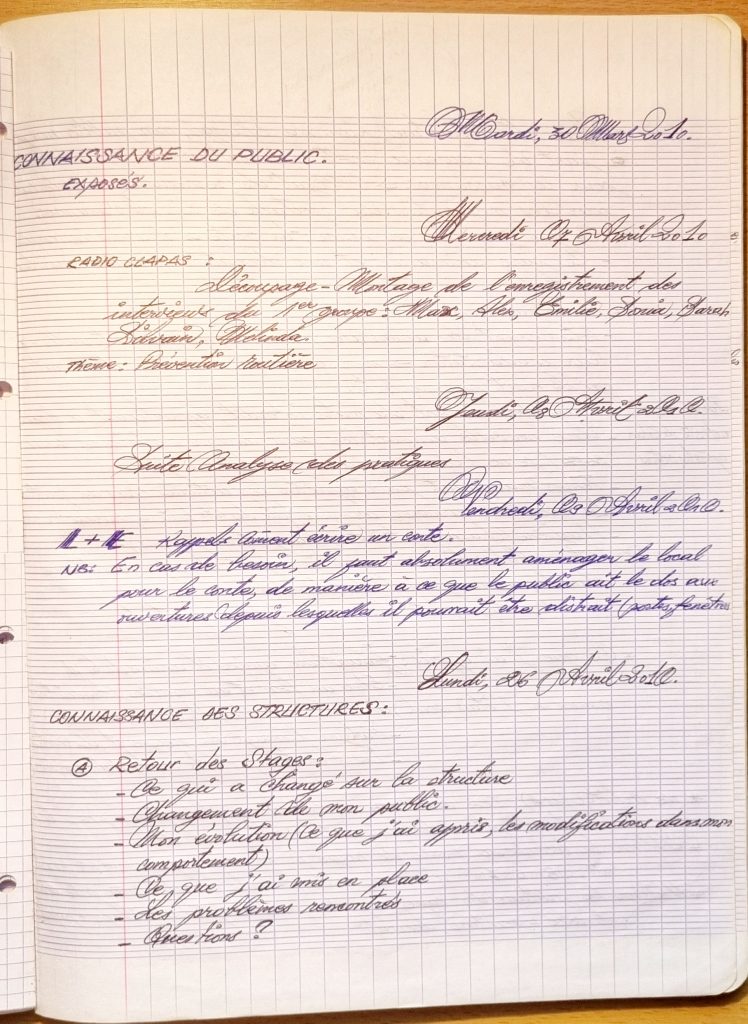 Mardi, 30 Mars 2010.
CONNAISSANCE DU PUBLIC.
EXPOSÉS.
Mercredi 07 Avril 2010
RADIO CLAPAS :
Découpage-Montage de l'enregistrement des
interviews du 1er groupe : Max, Alex, Emilie, Sonia, Sarah
Silvain, Melinda.
Thème : Prévention routière
Jeudi, 08 Avril 2010.
Suite Analyse des pratiques
Vendredi, 09 Avril 2010.
Rappels Comment écrire un conte.
NB: En cas de besoin, il faut absolument aménager le local
pour le conte, de manière à ce que le public ait le dos aux
ouvertures depuis lesquelles il pourrait être distrait (portes, fenêtres
Lundi, 26 Avril 2010.
CONNAISSANCE DES STRUCTURES :
Retour des Stages :
- Ce qui a changé sur la structure
- Changement de mon public.
- Mon evolution (Ce que j'ai appris, les modifications dans mon
comportement)
- Ce que j'ai mis en place
- Les problèmes rencontrés
- Questions ?